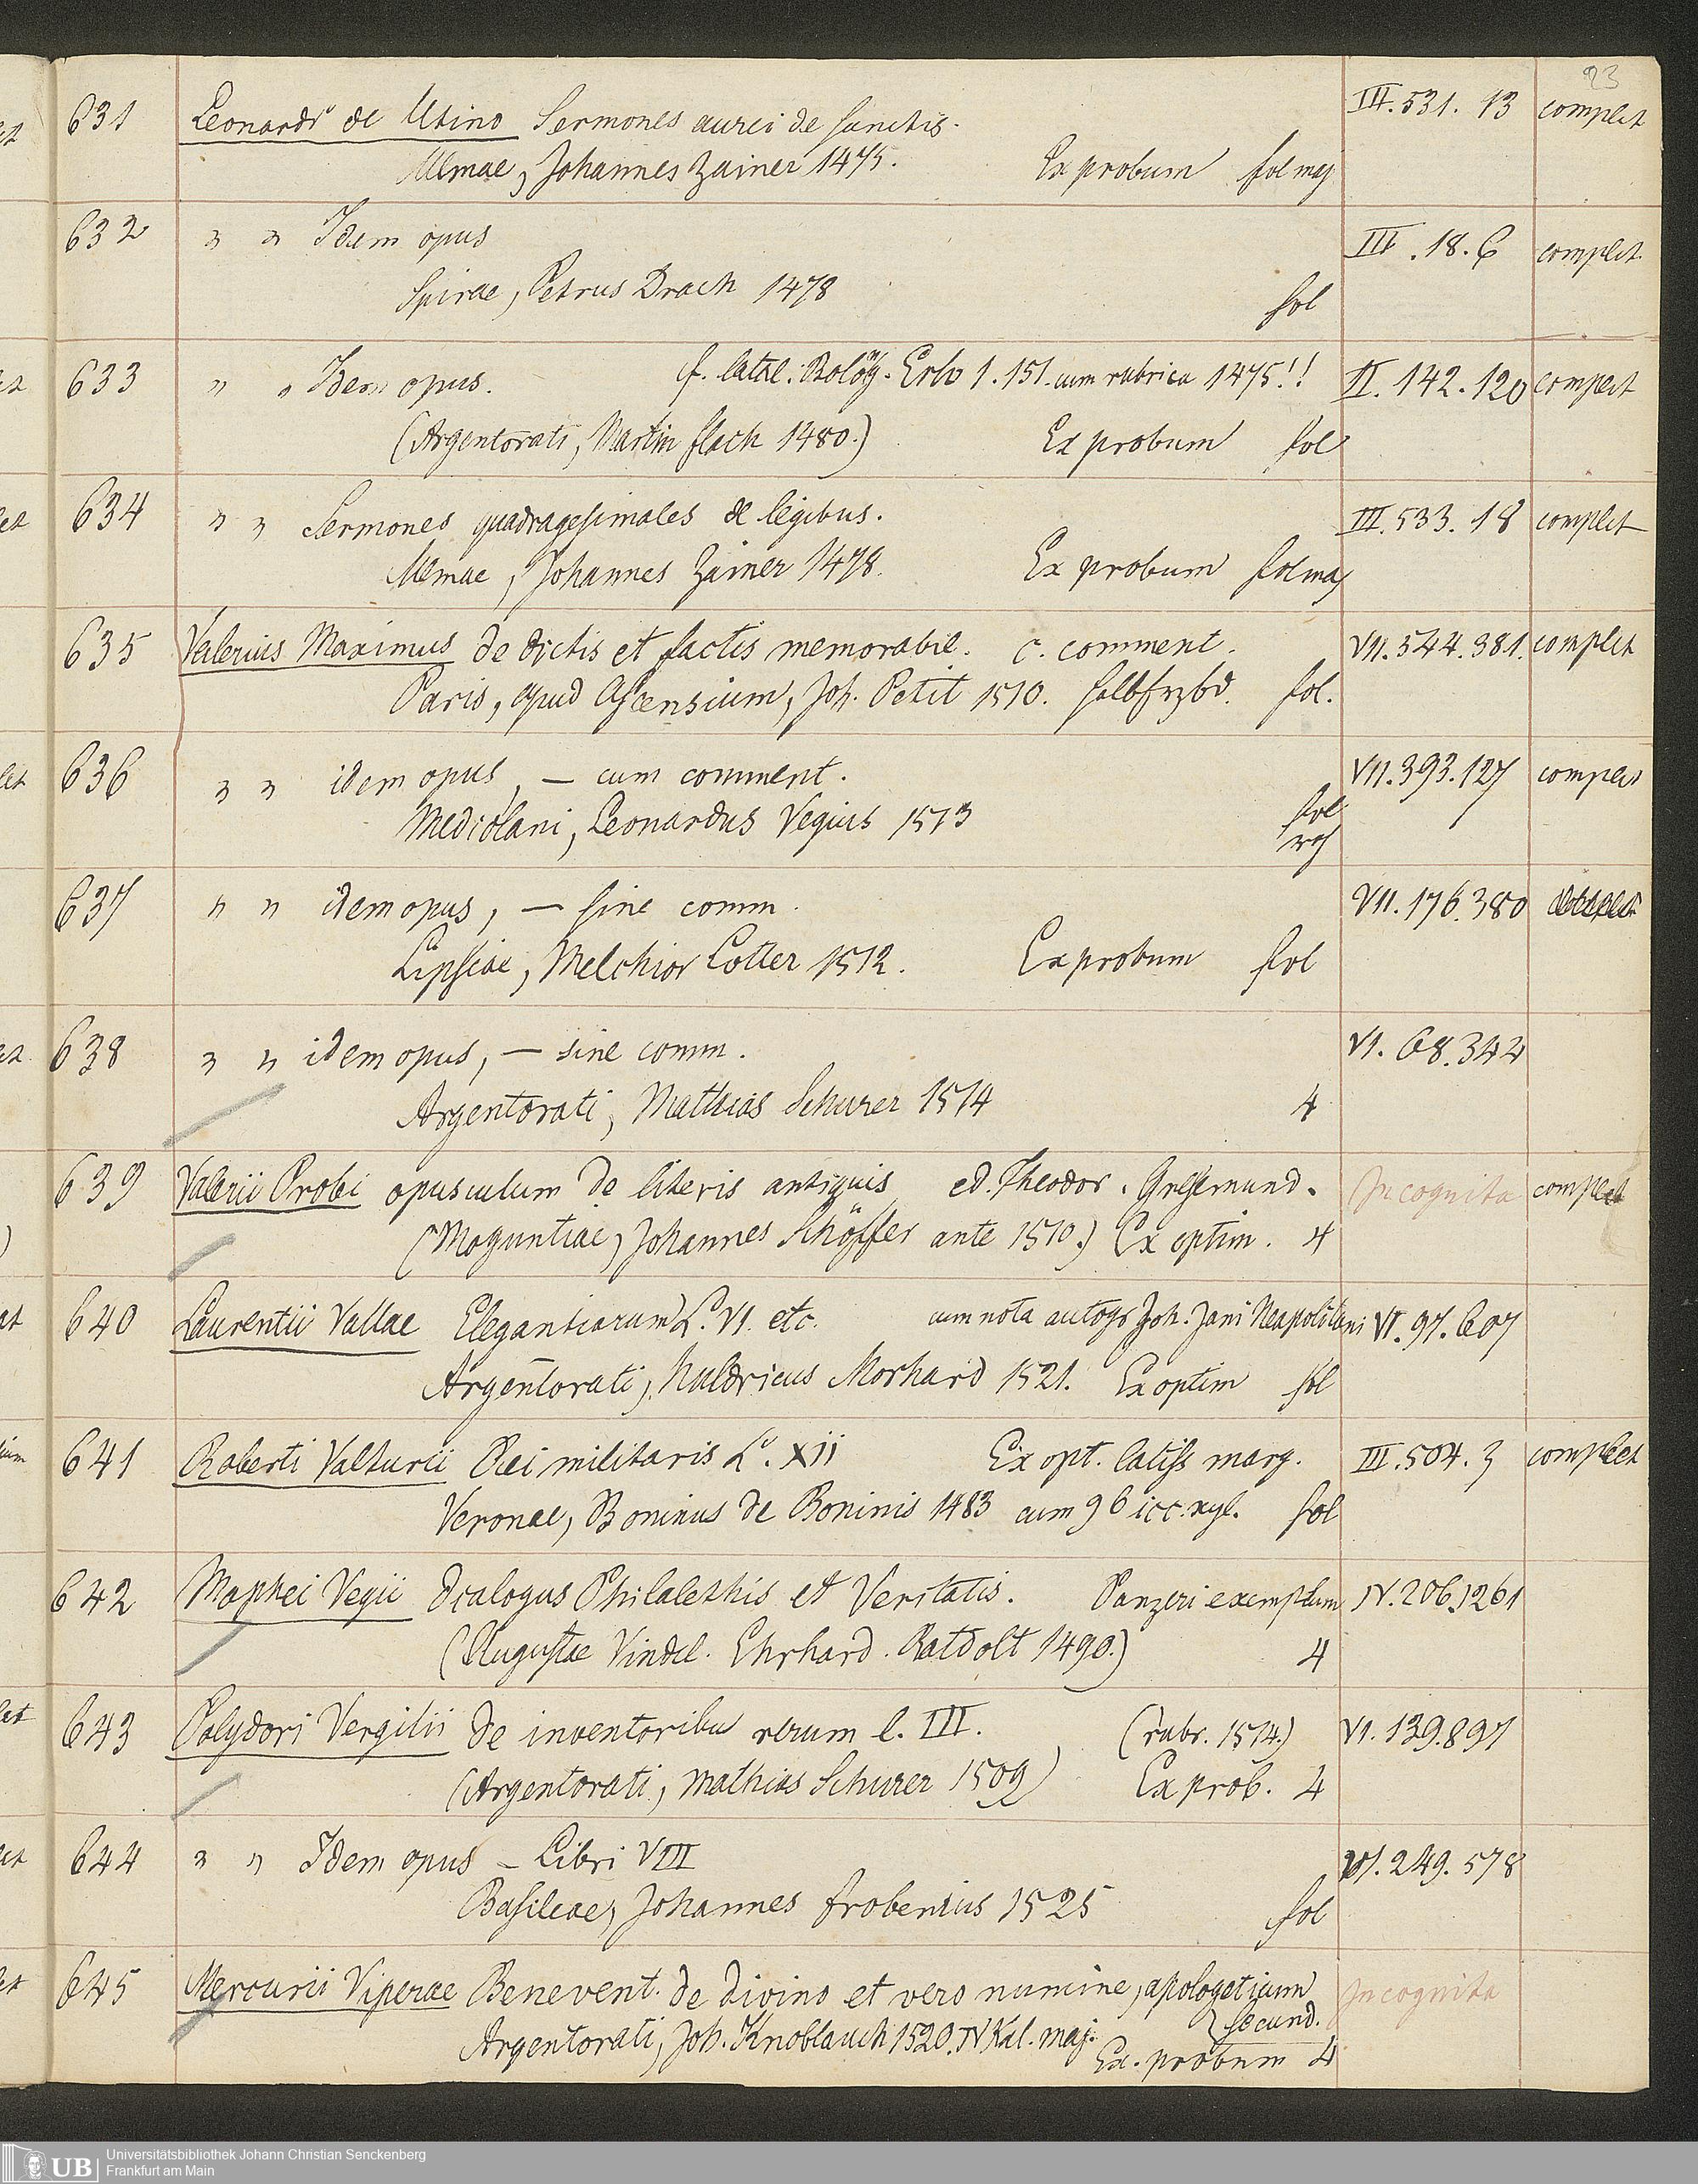 23
631 Leonardi de Utino Sermones aurei de sanctis. III.531.13 complet
Ulmae, Johannes Zainer 1475. Ex probum fol maj
632 " " Idem opus III.18.6 complet
Spirae, Petrus Drach 1478 fol
633 " " Idem opus. Erlo 1.151. cum rubrica 1475!! II.142.120 complet
(Argentorati, Martin flach 1480.) Ex probum fol
634 " " Sermones quadragesimales de legibus. III.533.18 complet
Ulmae, Johannes Zainer 1478. Ex probum fol maj
635 Valerius Maximus de dictis et factis memorabil. c. comment. VII.544.381. complet
Paris, apud Ascensium, Joh. Petit 1510. halbfrzbd. fol.
636 " " idem opus, — cum comment. VII.393.127 complet
Mediolani, Leonardus Vegius 1513 fol
637 " " idem opus, — sine comm. VII.176.380
Lipsiae, Melchior Lotter 1512. Ex probum fol
638 " " idem opus, — sine comm. VI.68.342
Argentorati, Matthias Schurer 1514 4
639 Valerii Probi opusculum de literis antiquis ed. Theodor. Gresemund. Incognita complet
(Moguntiae, Johannes Schöffer ante 1510.) Ex optim. 4
640 Laurentii Vallae Elegantiarum L. VI. etc. cum nota autogr Joh. Jani Neapolitani VI.97.607
Argentorati, Huldricus Morhard 1521. Ex optim fol
641 Roberti Valturii Rei militaris L. xii Ex opt. latiss marg. III.504.3 complet
Veronae, Boninus de Boninis 1483 cum 96 icc. xyl. fol
642 Maphei Vegii dialogus Philalethis et Veritatis. Panzeri exemplum IV.206.1261
(Augustae Vindel. Ehrhard. Ratdolt 1490.) 4
643 Polydori Vergilii de inventoribu rerum l. III. (rubr. 1514.) VI.139.897
(Argentorati, Mathias Schurer 1509) Ex prob. 4
644 " " Idem opus – Libri VIII VI.249.578
Basileae, Johannes frobenius 1525 fol
645 Mercurii Viperae Benevent. de divino et vero numine, apologeticum Incognita
secund.
Argentorati, Joh. Knoblauch 1520. IV Kal. maj. Ex. probum 4
UB Universitätsbibliothek Johann Christian Senckenberg
Frankfurt am Main